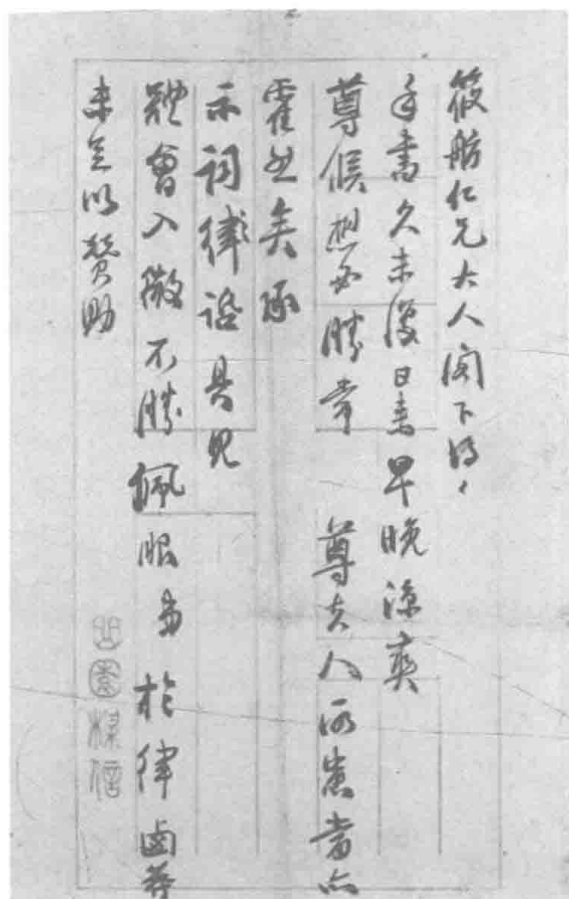 筱舫仁兄大人阁下得
手書久未復日来早晚涼爽
尊候想必勝常　尊夫人所患當亦
霍然矣承
示詞律語具見
體會入微不勝佩服弟於律鹵莽
未足以贊助